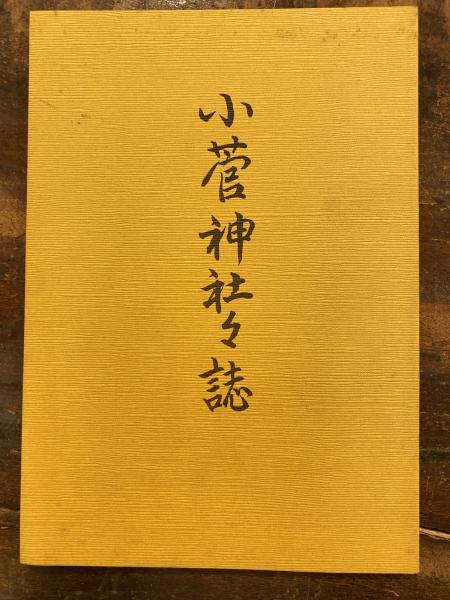 小菅神社々誌